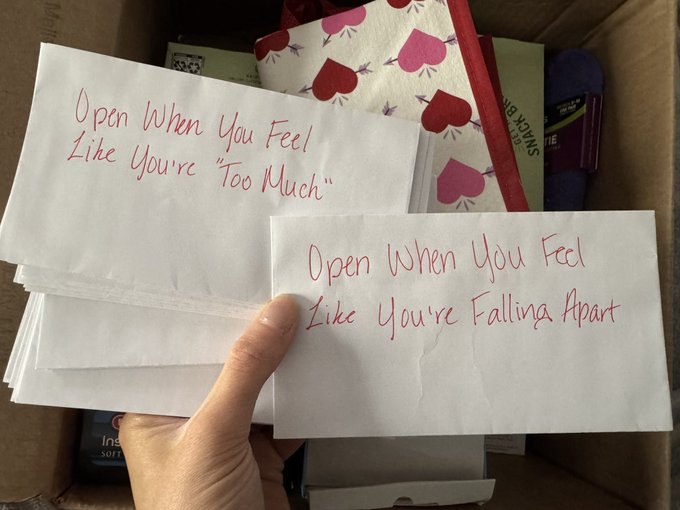 Open When You Feel
Like You're "Too Much"
Open When You Feel
Like You're Falling Apart
SNACK
TIE
Ins
SOFT